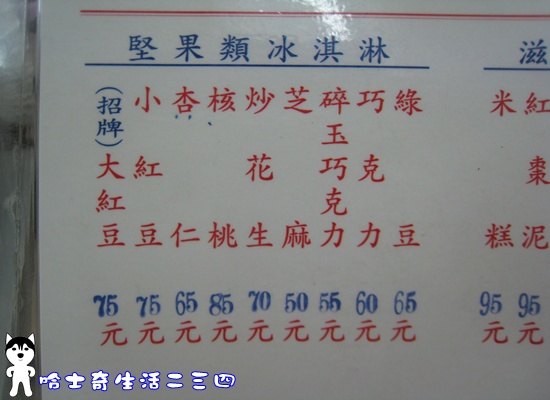 堅果類冰淇淋
(招牌)大紅豆 75元
小紅豆 75元
杏仁 65元
核桃 85元
炒花生 70元
芝麻 50元
碎玉巧克力 55元
巧克力 60元
綠豆 65元
滋
米糕 95元
紅棗泥 95元
哈士奇生活二三四